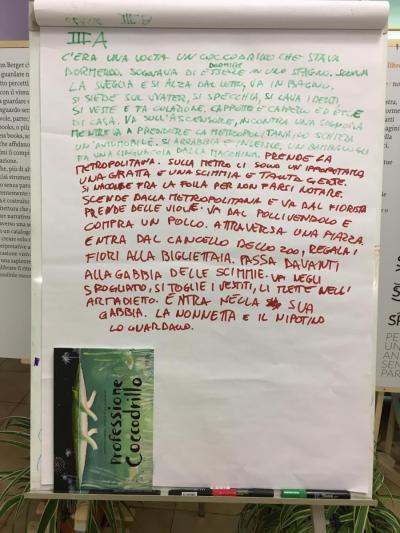 III A
C'ERA UNA VOLTA UN COCCODRILLO CHE STAVA
DORMENDO. SOGNAVA DI ESSERE IN UNO STAGNO. SUONA
LA SVEGLIA E SI ALZA DAL LETTO, VA IN BAGNO,
SI SIEDE SUL WATER, SI SPECCHIA, SI LAVA I DENTI,
SI VESTE E FA COLAZIONE, CAPPOTTO E CAPPELLO ED ESCE
DI CASA. VA SULL'ASCENSORE, INCONTRA UNA SIGNORA
MENTRE VA A PRENDERE LA METROPOLITANA, LO SCHIZZA
UN'AUTOMOBILE. SI ARRABBIA E INVECE, UN BAMBINO GLI
FA UNA LINGUACCIA DALLA MACCHINA. PRENDE LA
METROPOLITANA. SULLA METRO CI SONO UN IPPOPOTAMO
UNA GIRAFFA E UNA SCIMMIA E TANTA GENTE.
SI NASCONDE FRA LA FOLLA PER NON FARSI NOTARE.
SCENDE DALLA METROPOLITANA E VA DAL FIORISTA
PRENDE DELLE VIOLE. VA DAL POLLIVENDOLO E
COMPRA UN POLLO. ATTRAVERSA UNA PIAZZA.
ENTRA DAL CANCELLO DELLO ZOO, REGALA I
FIORI ALLA BIGLIETTAIA. PASSA DAVANTI
ALLA GABBIA DELLE SCIMMIE. VA NEGLI
SPOGLIATOI, SI TOGLIE I VESTITI, LI METTE NELL'
ARMADIETO. ENTRA NELLA SUA
GABBIA. LA NONNETTA E IL NIPOTINO
LO GUARDANO.
Professione
Coccodrillo